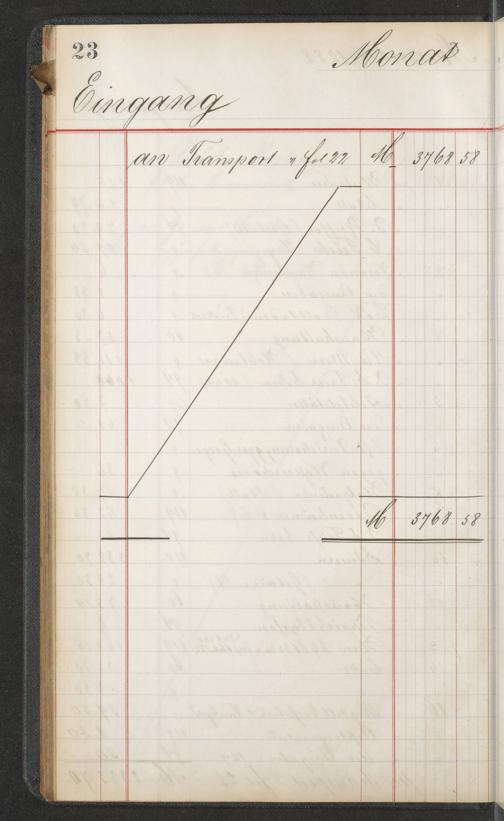 23
Monat
Eingang
an Transport v fol 22 M 3768 58
M 3768 58